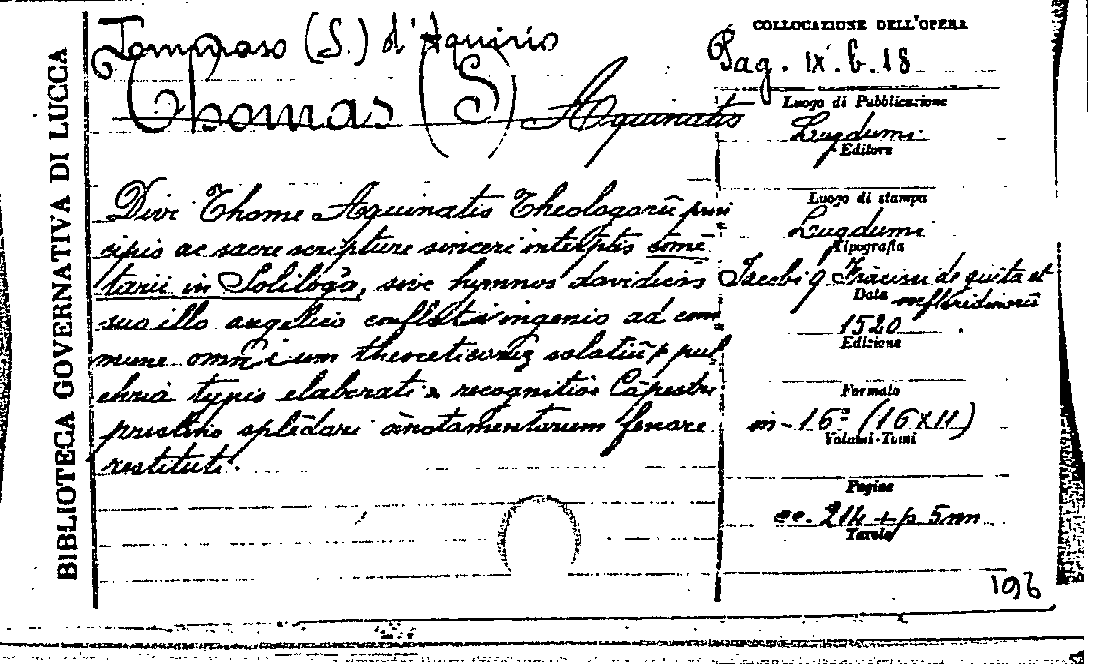 BIBLIOTECA GOVERNATIVA DI LUCCA
Tommaso (S.) d'Aquino
Thomas (S) Aquinatis
Divi Thome Aquinatis Theologorū prin
cipis ac sacre scripture sinceri interptis comē
tarii in Soliloga, sive hymnos davidicos
suo illo angelico conflati ingenio ad com
mune omnium theoreticorum solatiū p pul
chria typis elaborati & recognitioē Capestri
pristino splēdori ānotamentorum fenore
restituti.
COLLOCAZIONE DELL'OPERA
Pag. IX. b. 18
Luogo di Pubblicazione
Lugduni
Editore
Luogo di stampa
Lugduni
Tipografia
Jacobi q Frācisci de giūta et
Data
1520
Edizione
Formato
in-16º (16x11)
Volumi-Tomi
Pagine
cc. 214 + p 5nn
Tavole
196